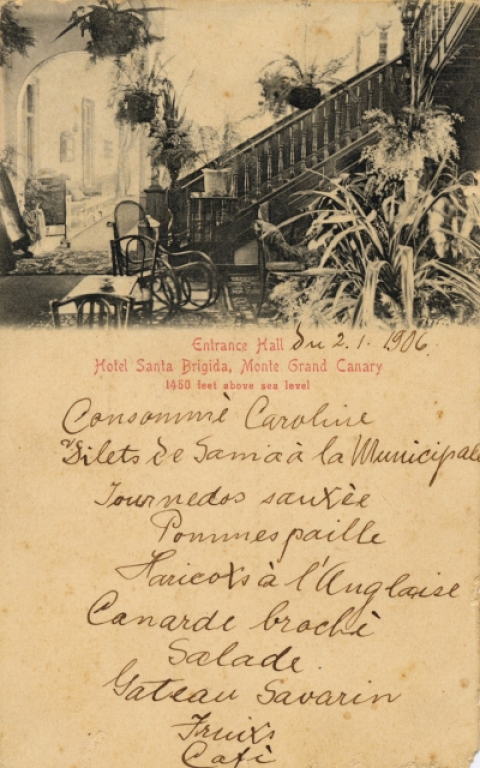 Entrance Hall du 2.1.1906.
Hotel Santa Brigida, Monte Grand Canary
1450 feet above sea level
Consommè Caroline
Filets de Sama à la Municipale
Tournedos sautèe
Pommes paille
Haricots à l'Anglaise
Canarde brochè
Salade.
Gateau Savarin
Fruits
Cafè